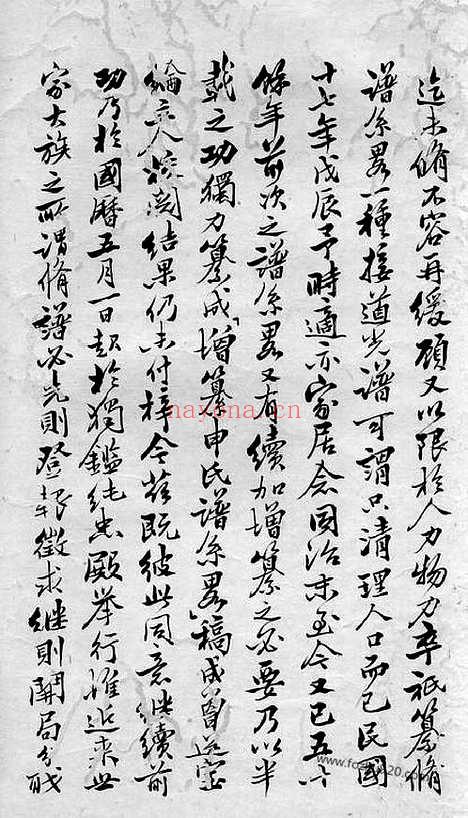 迄未脩不容再緩顧又以限於人力物力卒祇纂脩
譜系畧一種接道光譜可謂只清理人口而已民國
十七年戊辰予時適亦家居念同治末至今又已五十
餘年前次之譜系畧又有續加增纂之必要乃以半
載之功獨力纂成「增纂申氏譜系畧」稿成曾送
綸立人 結果仍未付梓今茲既彼此同意继續前
功乃於國曆五月一日起於獨鑑純忠殿举行惟近來世
家大族之所謂脩譜必先則登报徵求继則開局分
nayona.cn
www.foxue20.com